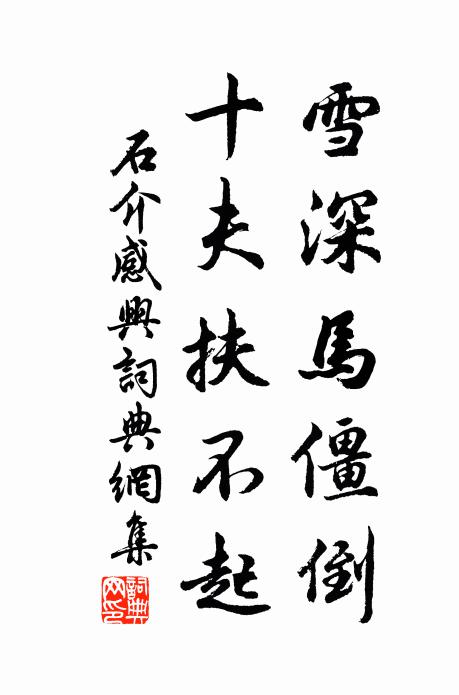 雪深馬僵倒
十夫扶不起
石介感興詞典網集
詞典網印